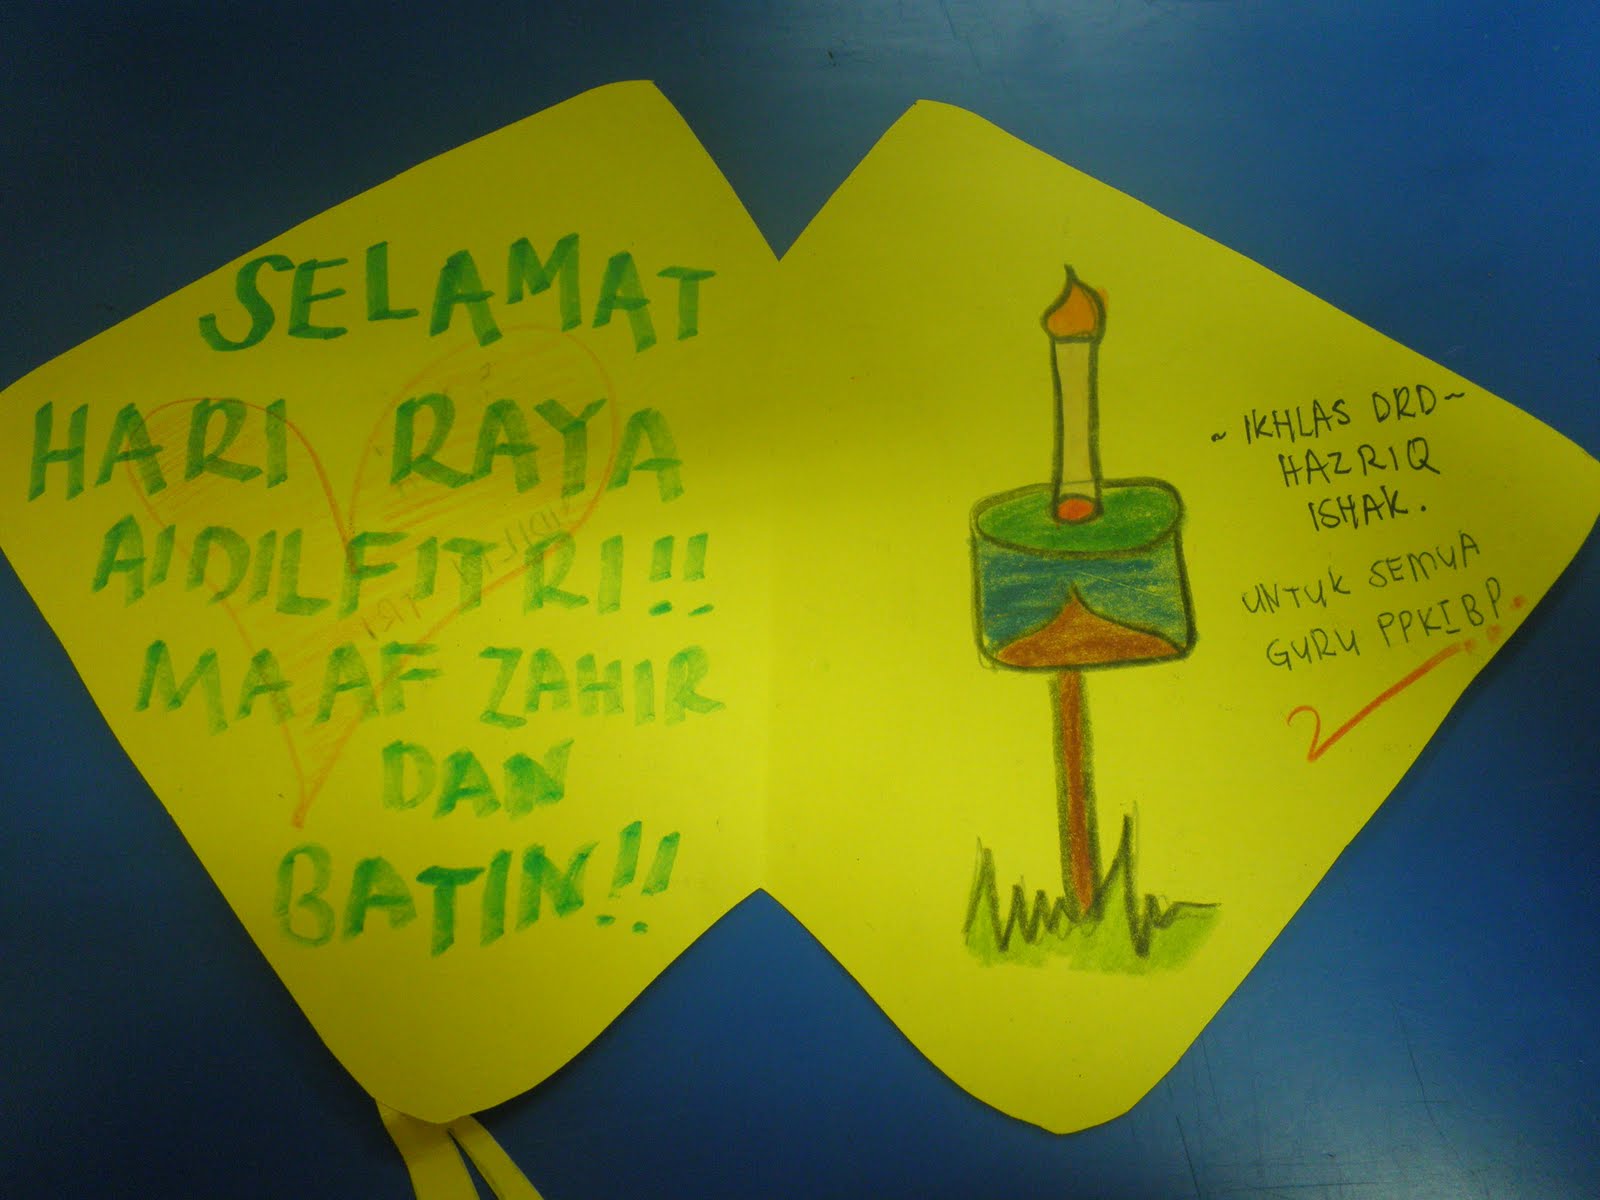 SELAMAT
HARI RAYA
AIDILFITRI!!
MAAF ZAHIR
DAN
BATIN!!
~ IKHLAS DRD ~
HAZRIQ
ISHAK.
UNTUK SEMUA
GURU PPKIBP.